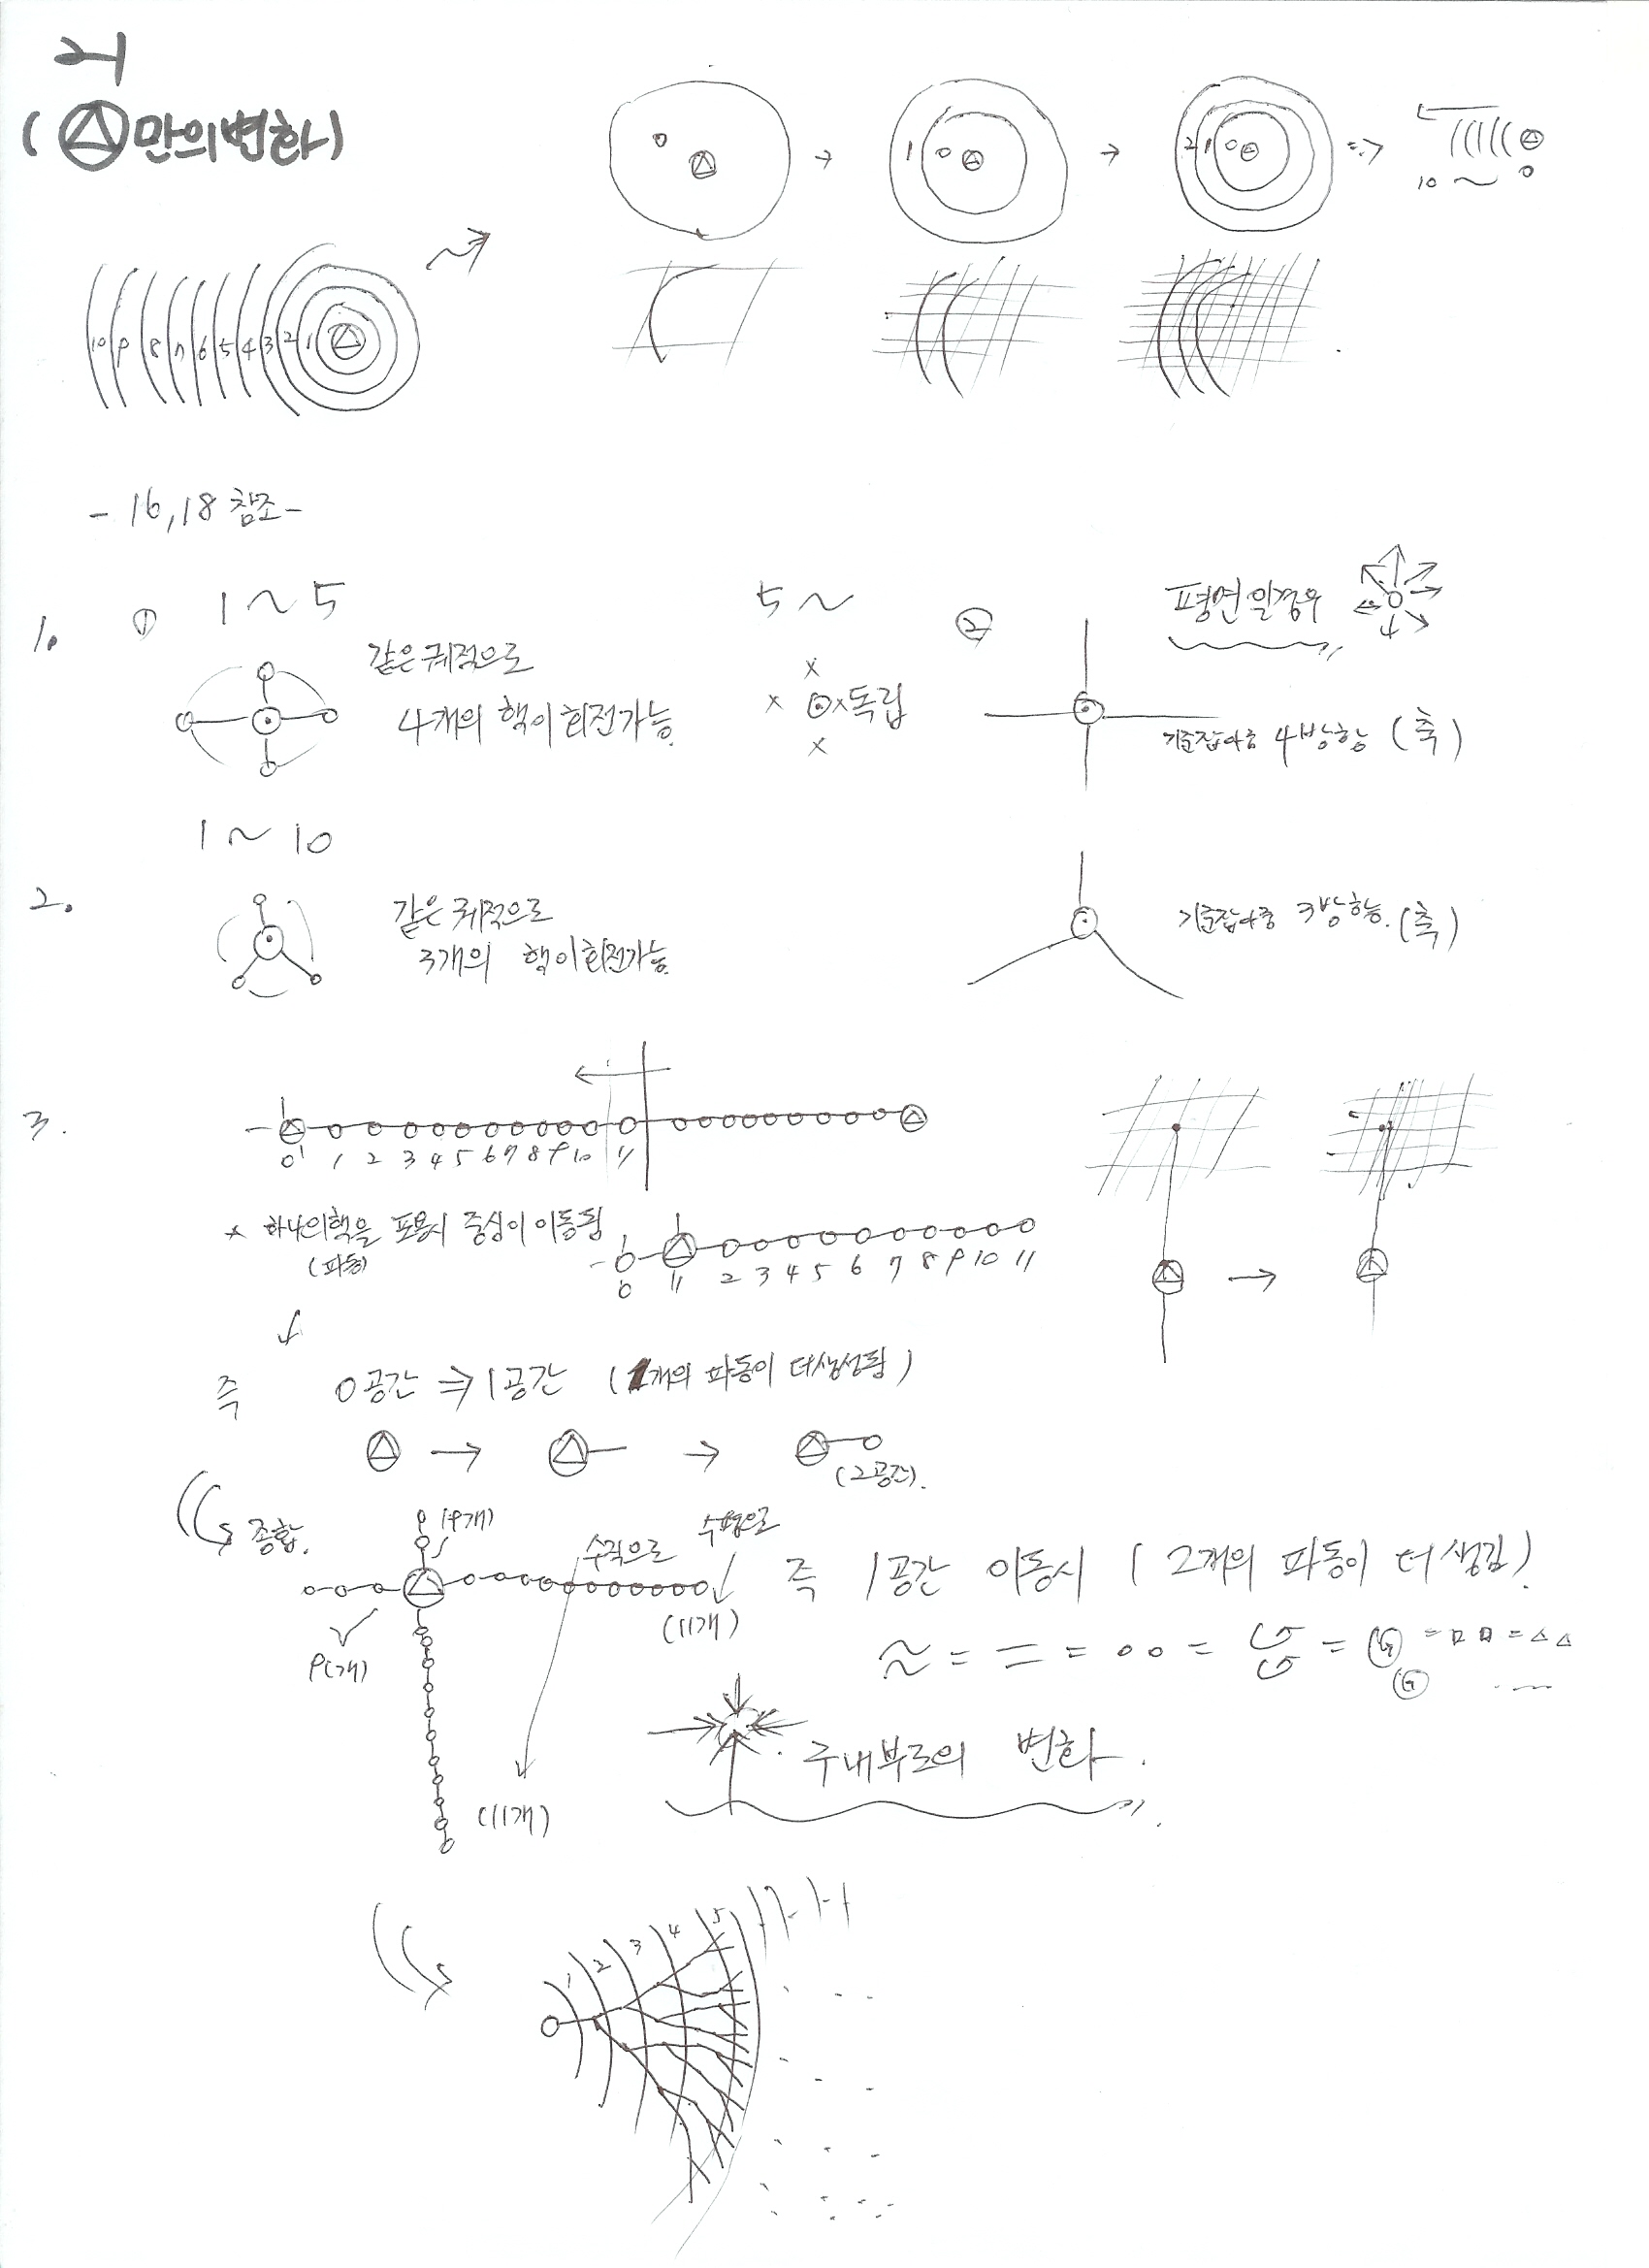 21
(만의변화)
0
1 0
2 1 0
10 ~ 0
10 9 8 7 6 5 4 3 2 1
- 16, 18 참조 -
1. ① 1 ~ 5
같은궤적으로
4개의 핵이회전가능
5 ~
x x x x 독립
②
평면일경우
기준잡아줌 4방향 (축)
1 ~ 10
2.
같은궤적으로
3개의 핵이회전가능
기준잡아줌 3방향 (축)
3.
0 1 2 3 4 5 6 7 8 9 10 11
* 하나의핵을 포용시 중심이이동됨
(파동)
0 11 2 3 4 5 6 7 8 9 10 11
즉 0공간 ⇒ 1공간 (1개의 파동이 더생성됨)
(2공간).
종합.
(9개)
수직으로
수평으로
9(개)
(11개)
(11개)
즉 1공간 이동시 ( 2개의 파동이 더 생김).
구내부로의 변화.
1 2 3 4 5